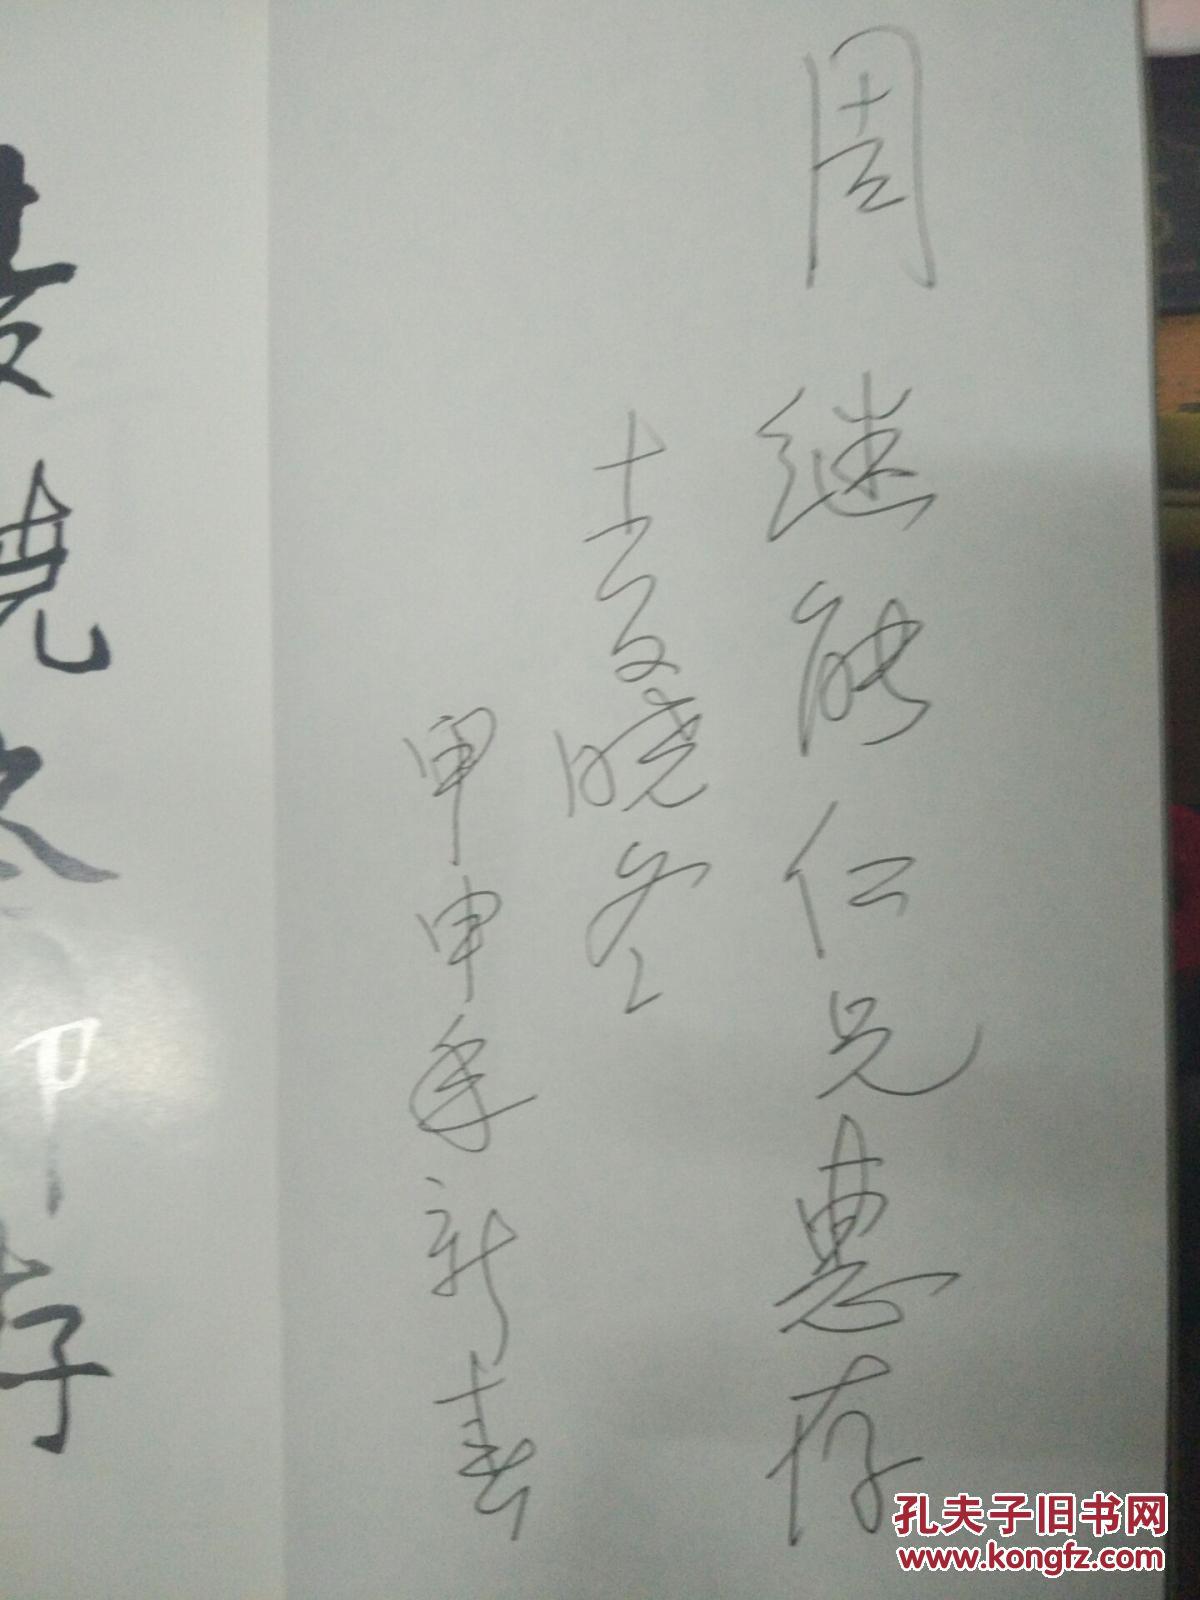 周继能仁兄惠存
晓冬
甲申年新春
存
孔夫子旧书网
www.kongfz.com